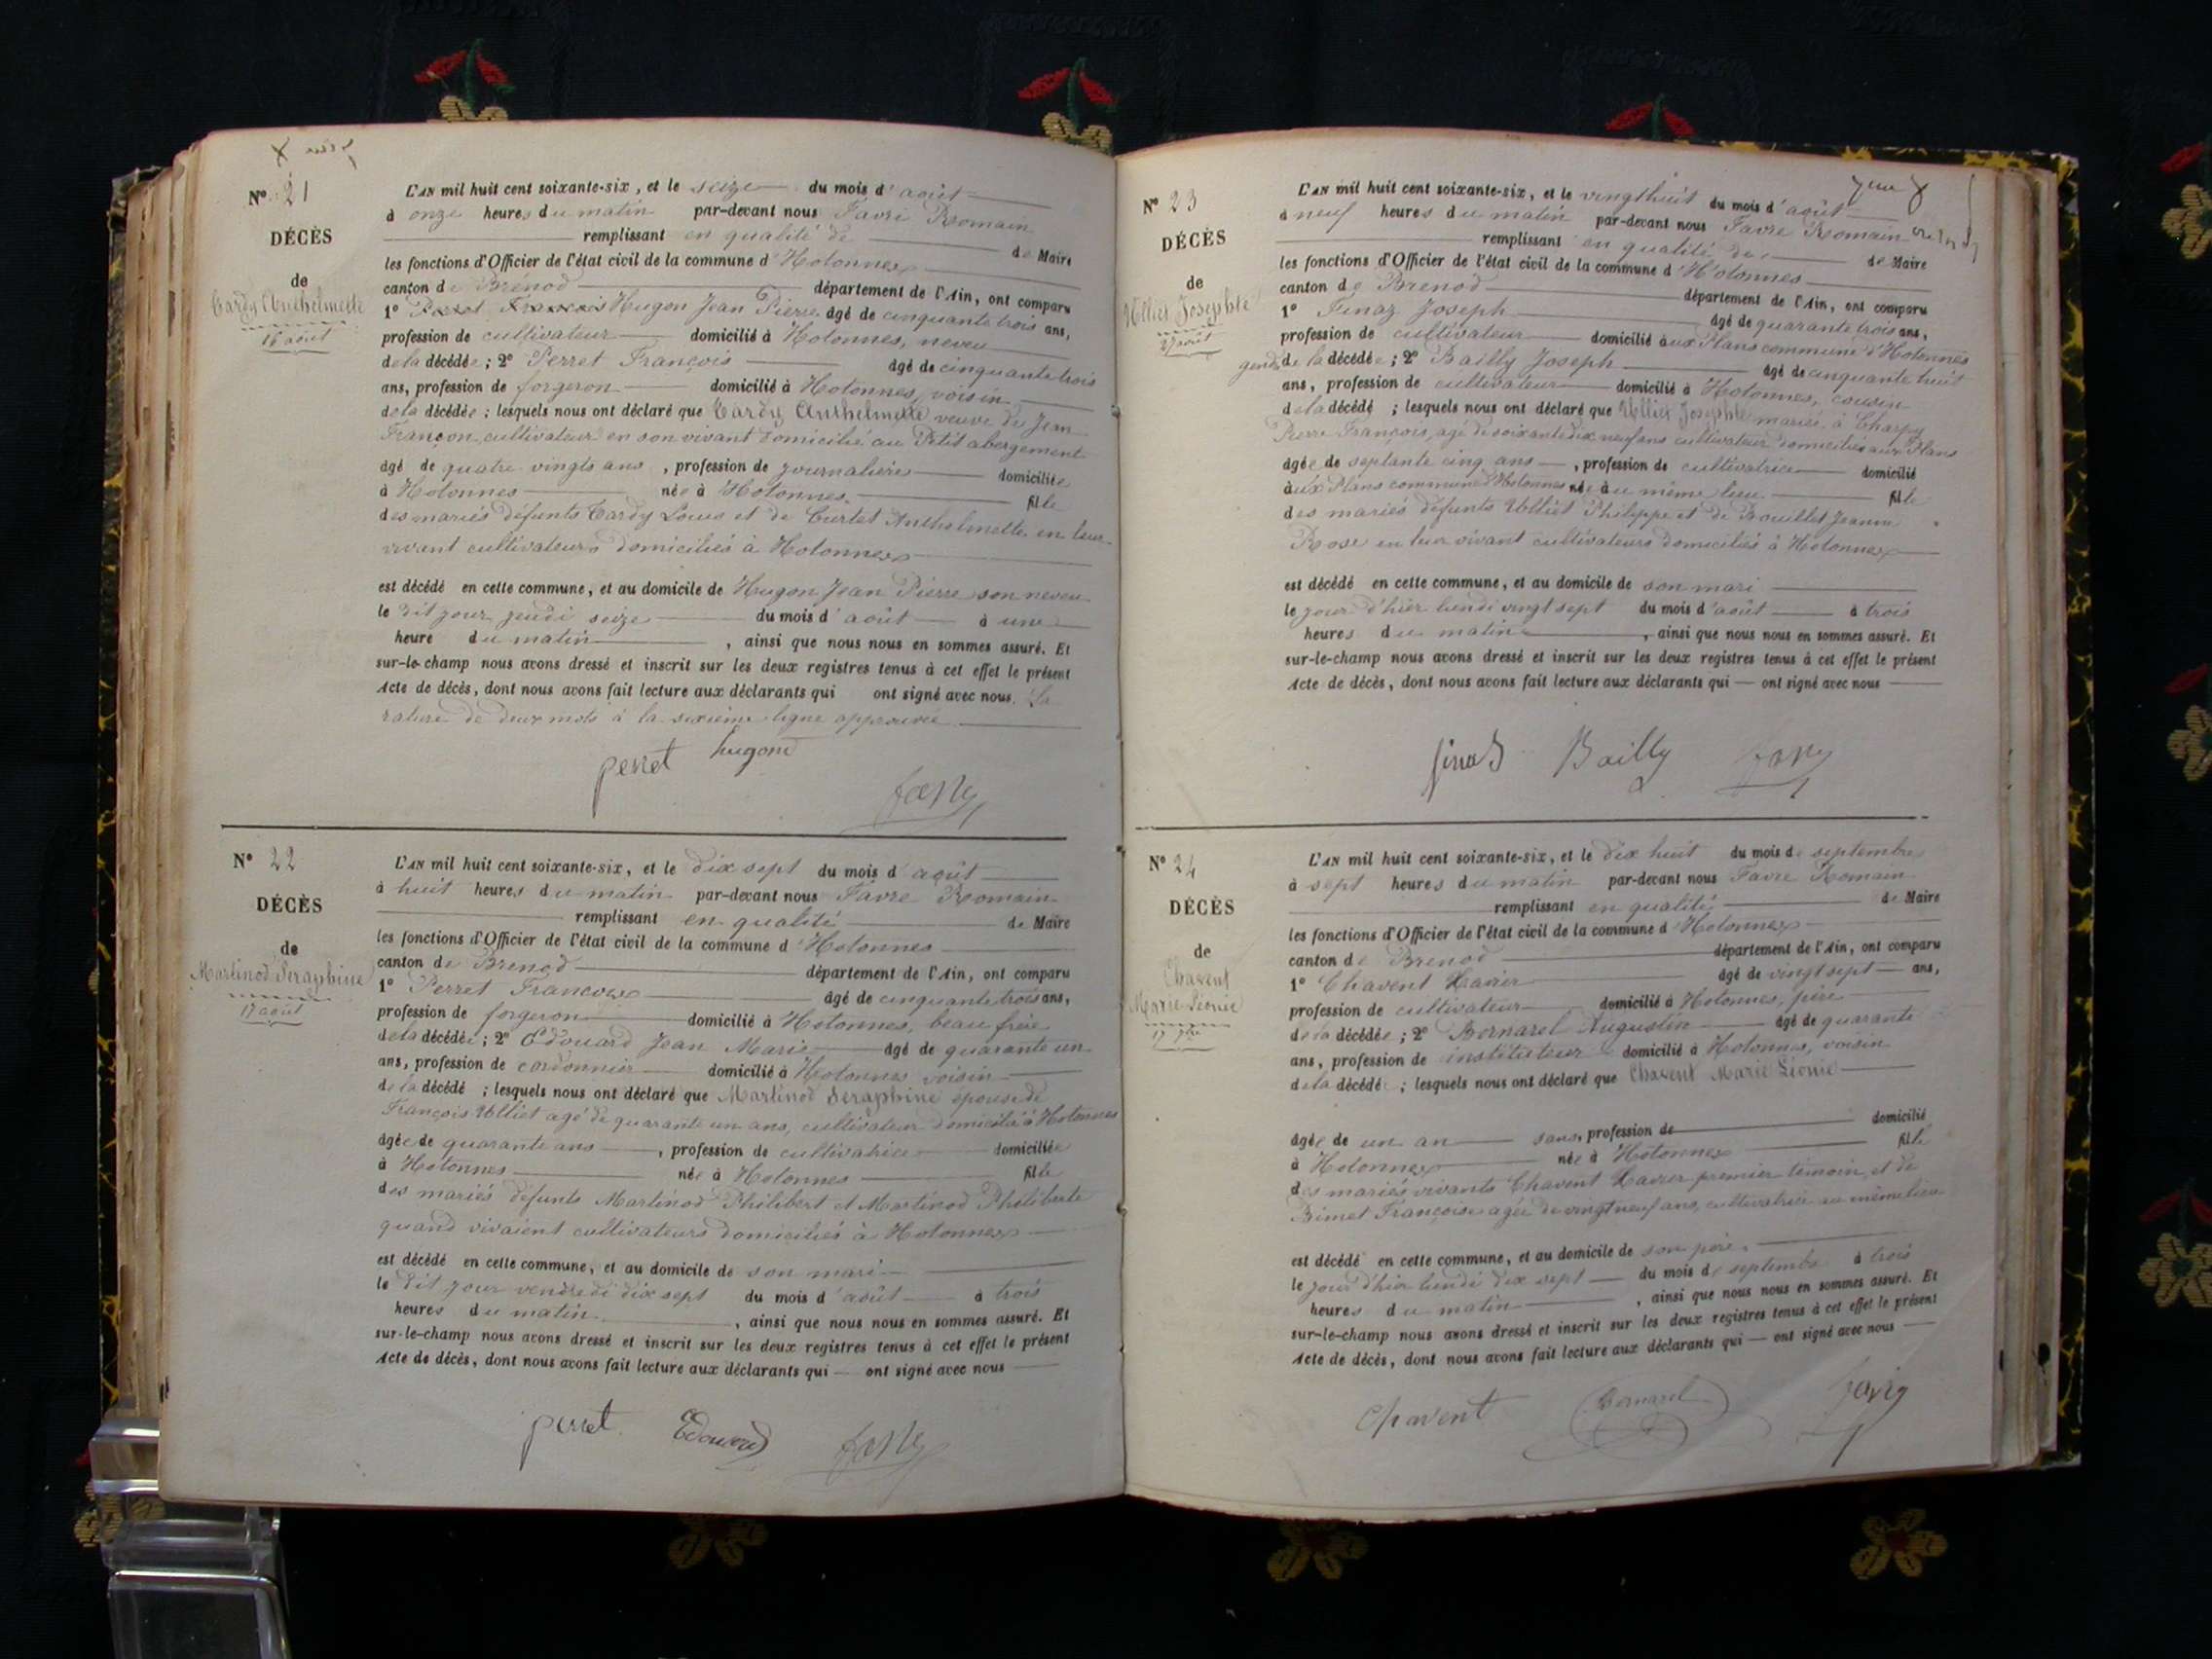 N° 21
DÉCÈS
de
Tardy Anthelmette
16 août
L'AN mil huit cent soixante-six, et le seize du mois d'août
à onze heures du matin par-devant nous Favre Romain
remplissant en qualité de de Maire
les fonctions d'Officier de l'état civil de la commune d'Hotonnes
canton de Brénod département de l'Ain, ont comparu
1° Perret François Hugon Jean Pierre âgé de cinquante trois ans,
profession de cultivateur domicilié à Hotonnes, neveu
de la décédée ; 2° Perret François âgé de cinquante trois
ans, profession de forgeron domicilié à Hotonnes, voisin
de la décédée ; lesquels nous ont déclaré que Tardy Anthelmette veuve de Jean
Françon cultivateur en son vivant domicilié au Petit abergement
âgé de quatre vingts ans, profession de journalière domiciliée
à Hotonnes née à Hotonnes fille
des mariés défunts Tardy Louis et de Curtet Anthelmette en leur
vivant cultivateurs domiciliés à Hotonnes
est décédé en cette commune, et au domicile de Hugon Jean Pierre son neveu
le dit jour jeudi seize du mois d'août à une
heure du matin, ainsi que nous nous en sommes assuré. Et
sur-le-champ nous avons dressé et inscrit sur les deux registres tenus à cet effet le présent
Acte de décès, dont nous avons fait lecture aux déclarants qui ont signé avec nous. La
rature de deux mots à la sixième ligne approuvée
perret hugond
favre
N° 22
DÉCÈS
de
Martinod Seraphine
17 août
L'AN mil huit cent soixante-six, et le dix sept du mois d'août
à huit heures du matin par-devant nous Favre Romain
remplissant en qualité de Maire
les fonctions d'Officier de l'état civil de la commune d'Hotonnes
canton de Brenod département de l'Ain, ont comparu
1° Perret François âgé de cinquante trois ans,
profession de forgeron domicilié à Hotonnes, beau frère
de la décédée ; 2° Edouard Jean Marie âgé de quarante un
ans, profession de cordonnier domicilié à Hotonnes voisin
de la décédé ; lesquels nous ont déclaré que Martinod Seraphine épouse de
François Ulliet agé de quarante un ans, cultivateur domicilié à Hotonnes
âgée de quarante ans, profession de cultivatrice domiciliée
à Hotonnes née à Hotonnes fille
des mariés défunts Martinod Philibert et Martinod Philiberte
quand vivaient cultivateurs domiciliés à Hotonnes
est décédé en cette commune, et au domicile de son mari
le dit jour vendredi dix sept du mois d'août à trois
heures du matin, ainsi que nous nous en sommes assuré. Et
sur-le-champ nous avons dressé et inscrit sur les deux registres tenus à cet effet le présent
Acte de décès, dont nous avons fait lecture aux déclarants qui ont signé avec nous
perret Edouard favre
N° 23
DÉCÈS
de
Ulliet Josephte
27 août
L'AN mil huit cent soixante-six, et le vingt huit du mois d'août
à neuf heures du matin par-devant nous Favre Romain
remplissant en qualité de de Maire
les fonctions d'Officier de l'état civil de la commune d'Hotonnes
canton de Brenod département de l'Ain, ont comparu
1° Finaz Joseph âgé de quarante trois ans,
profession de cultivateur domicilié aux Plans commune d'Hotonnes
gendre de la décédée ; 2° Bailly Joseph âgé de cinquante huit
ans, profession de cultivateur domicilié à Hotonnes, cousin
de la décédé ; lesquels nous ont déclaré que Ulliet Josephte mariée à Charpy
Pierre François, agé de soixante dix neuf ans cultivateur domiciliés aux Plans
âgée de septante cinq ans, profession de cultivatrice domicilié
aux Plans commune d'Hotonnes née au même lieu fille
des mariés défunts Ulliet Philippe et de Bouillet Jeanne
Rose en leur vivant cultivateurs domiciliés à Hotonnes
est décédé en cette commune, et au domicile de son mari
le jour d'hier lundi vingt sept du mois d'août à trois
heures du matin, ainsi que nous nous en sommes assuré. Et
sur-le-champ nous avons dressé et inscrit sur les deux registres tenus à cet effet le présent
Acte de décès, dont nous avons fait lecture aux déclarants qui ont signé avec nous
finas Bailly favre
N° 24
DÉCÈS
de
Chavent
Marie Léonie
17 7bre
L'AN mil huit cent soixante-six, et le dix huit du mois de septembre
à sept heures du matin par-devant nous Favre Romain
remplissant en qualité de Maire
les fonctions d'Officier de l'état civil de la commune d'Hotonnes
canton de Brenod département de l'Ain, ont comparu
1° Chavent Xavier âgé de vingt sept ans,
profession de cultivateur domicilié à Hotonnes, père
de la décédée ; 2° Bernarel Augustin âgé de quarante
ans, profession de instituteur domicilié à Hotonnes, voisin
de la décédé ; lesquels nous ont déclaré que Chavent Marie Léonie
âgée de un an sans, profession de domicilié
à Hotonnes née à Hotonnes fille
des mariés vivants Chavent Xavier premier témoin et de
Bimet Françoise agée de vingt neuf ans, cultivatrice au même lieu
est décédé en cette commune, et au domicile de son père
le jour d'hier lundi dix sept du mois de septembre à trois
heures du matin, ainsi que nous nous en sommes assuré. Et
sur-le-champ nous avons dressé et inscrit sur les deux registres tenus à cet effet le présent
Acte de décès, dont nous avons fait lecture aux déclarants qui ont signé avec nous
Chavent Bernarel favre